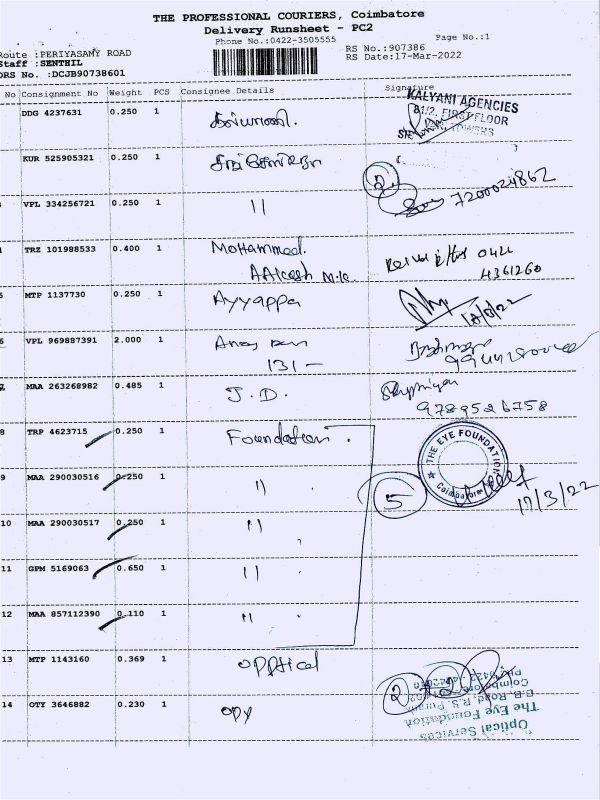 THE PROFESSIONAL COURIERS, Coimbatore
Delivery Runsheet - PC2
Phone No.:0422-3505555
Page No.:1
Route :PERIYASAMY ROAD
Staff :SENTHIL
DRS No. :DCJB90738601
RS No.:907386
RS Date:17-Mar-2022
No Consignment No Weight PCS Consignee Details Signature
DDG 4237631 0.250 1 கல்யாணி.
KALYANI AGENCIES
81/2, FIRST FLOOR
TOWERS
KUR 525905321 0.250 1
2
VPL 334256721 0.250 1 11 7200024862
TRZ 101988533 0.400 1 Mohammed.
AAkash M.K. 0422
4361260
5 MTP 1137730 0.250 1 Ayyappa
6 VPL 969887391 2.000 1
131 -
7 MAA 263268982 0.485 1 J.D.
9789526758
8 TRP 4623715 0.250 1 Foundation.
THE EYE FOUNDATION
Coimbatore
9 MAA 290030516 0.250 1 11
5
17/3/22
10 MAA 290030517 0.250 1 11
11 GPM 5169063 0.650 1 11
12 MAA 857112390 0.110 1 11
13 MTP 1143160 0.369 1 opptical
14 OTY 3646882 0.230 1 opy
2
Optical Services
The Eye Foundation
D.B. Road, R.S. Puram